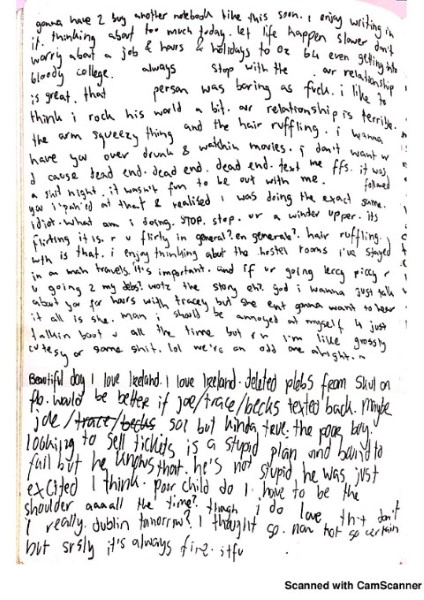 gonna have 2 buy another notebook like this soon. i enjoy writing in
it. thinking about too much today. let life happen slower don't
worry about a job & hours & holidays to oz b4 even getting into
bloody college. always stop with the our relationship
is great. that person was boring as fuck. i like to
think i rock his world a bit. our relationship is terrible.
the arm squeezy thing and the hair ruffling. i wanna
have you over drunk & watchin movies. i don't want
cause dead end. dead end. dead end. text me ffs. it was
a shit night. it wasn't fun to be out with me. followed
you at that & realised i was doing the exact same.
idiot. what am i doing. stop. stop. ur a winder upper. its
flirting it is. r u flirty in general? en generale? hair ruffling.
wth is that. i enjoy thinking about the hostel rooms i've stayed
in on mah travels. it's important. and if ur going
u going 2 my debs? wotz the story eh? god i wanna just talk
about you for hours with tracey but she ent gonna want to hear
it all is she. man i should be annoyed at myself 4 just
talkin boot u all the time but i'm like grossly
cutesy or some shit. lol we're an odd one alright.
Beautiful day I love Ireland. I love Ireland. deleted plebs from skul on
fb. would be better if joe/trace/becks texted back. maybe
joe /trace/becks sol but kinda true. the poor boy
looking to sell tickets is a stupid plan and bound to
fail but he knows that. he's not stupid he was just
excited I think. poor child do I have to be the
shoulder aaaall the time? though I do love tht don't
I really. dublin tomorrow? I thought so. nah not so certain
but srsly it's always fine. stfu
Scanned with CamScanner